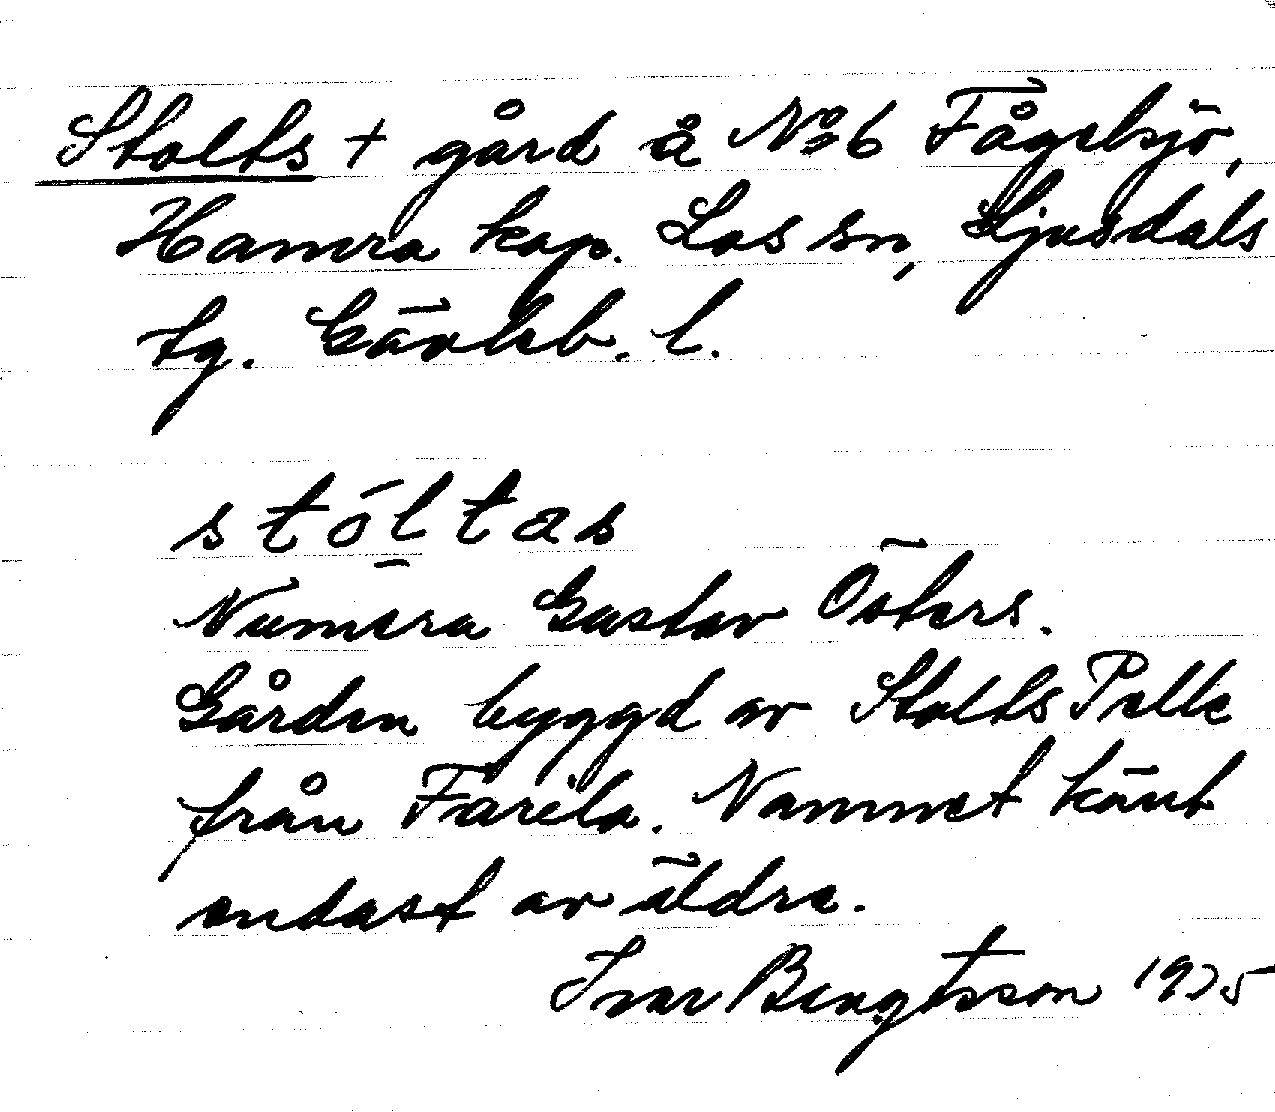 Stolts + gård å No 6 Fågelsjö,
Hamra kap. Los sn, Ljusdals
tg. Gävleb. l.
stóltas
Numera Gustav Östers.
Gården byggd av Stolts Pelle
från Färila. Namnet känt
endast av äldre.
Ivar Bengtsson 1975